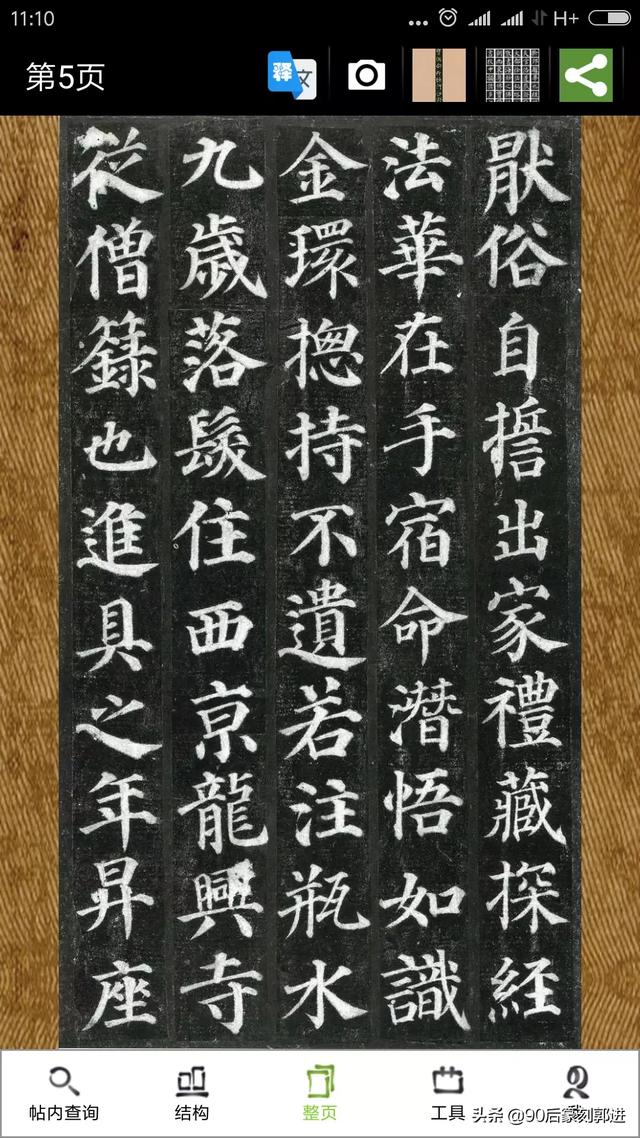 11:10
H+
第5页
释 文
厭俗自誓出家禮藏探經
法華在手宿命潛悟如識
金環揔持不遺若注瓶水
九歲落髮住西京龍興寺
從僧籙也進具之年昇座
帖内查询
结构
整页
工具
头条 @90后篆刻郭进